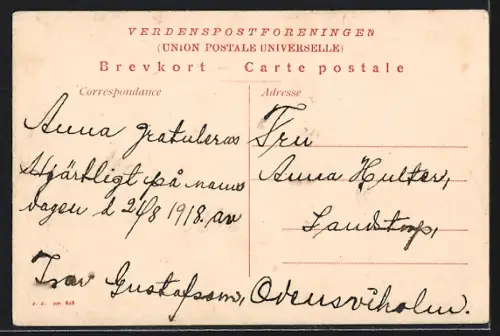 VERDENSPOSTFORENINGEN
(UNION POSTALE UNIVERSELLE)
Brevkort – Carte postale
Correspondance
Adresse
Anna gratuleras
Hjärtligt på namns
dagen d 21/8 1918. av
Gustafsson,
Fru
Anna Hulter,
Landstorp,
Odensviholm.